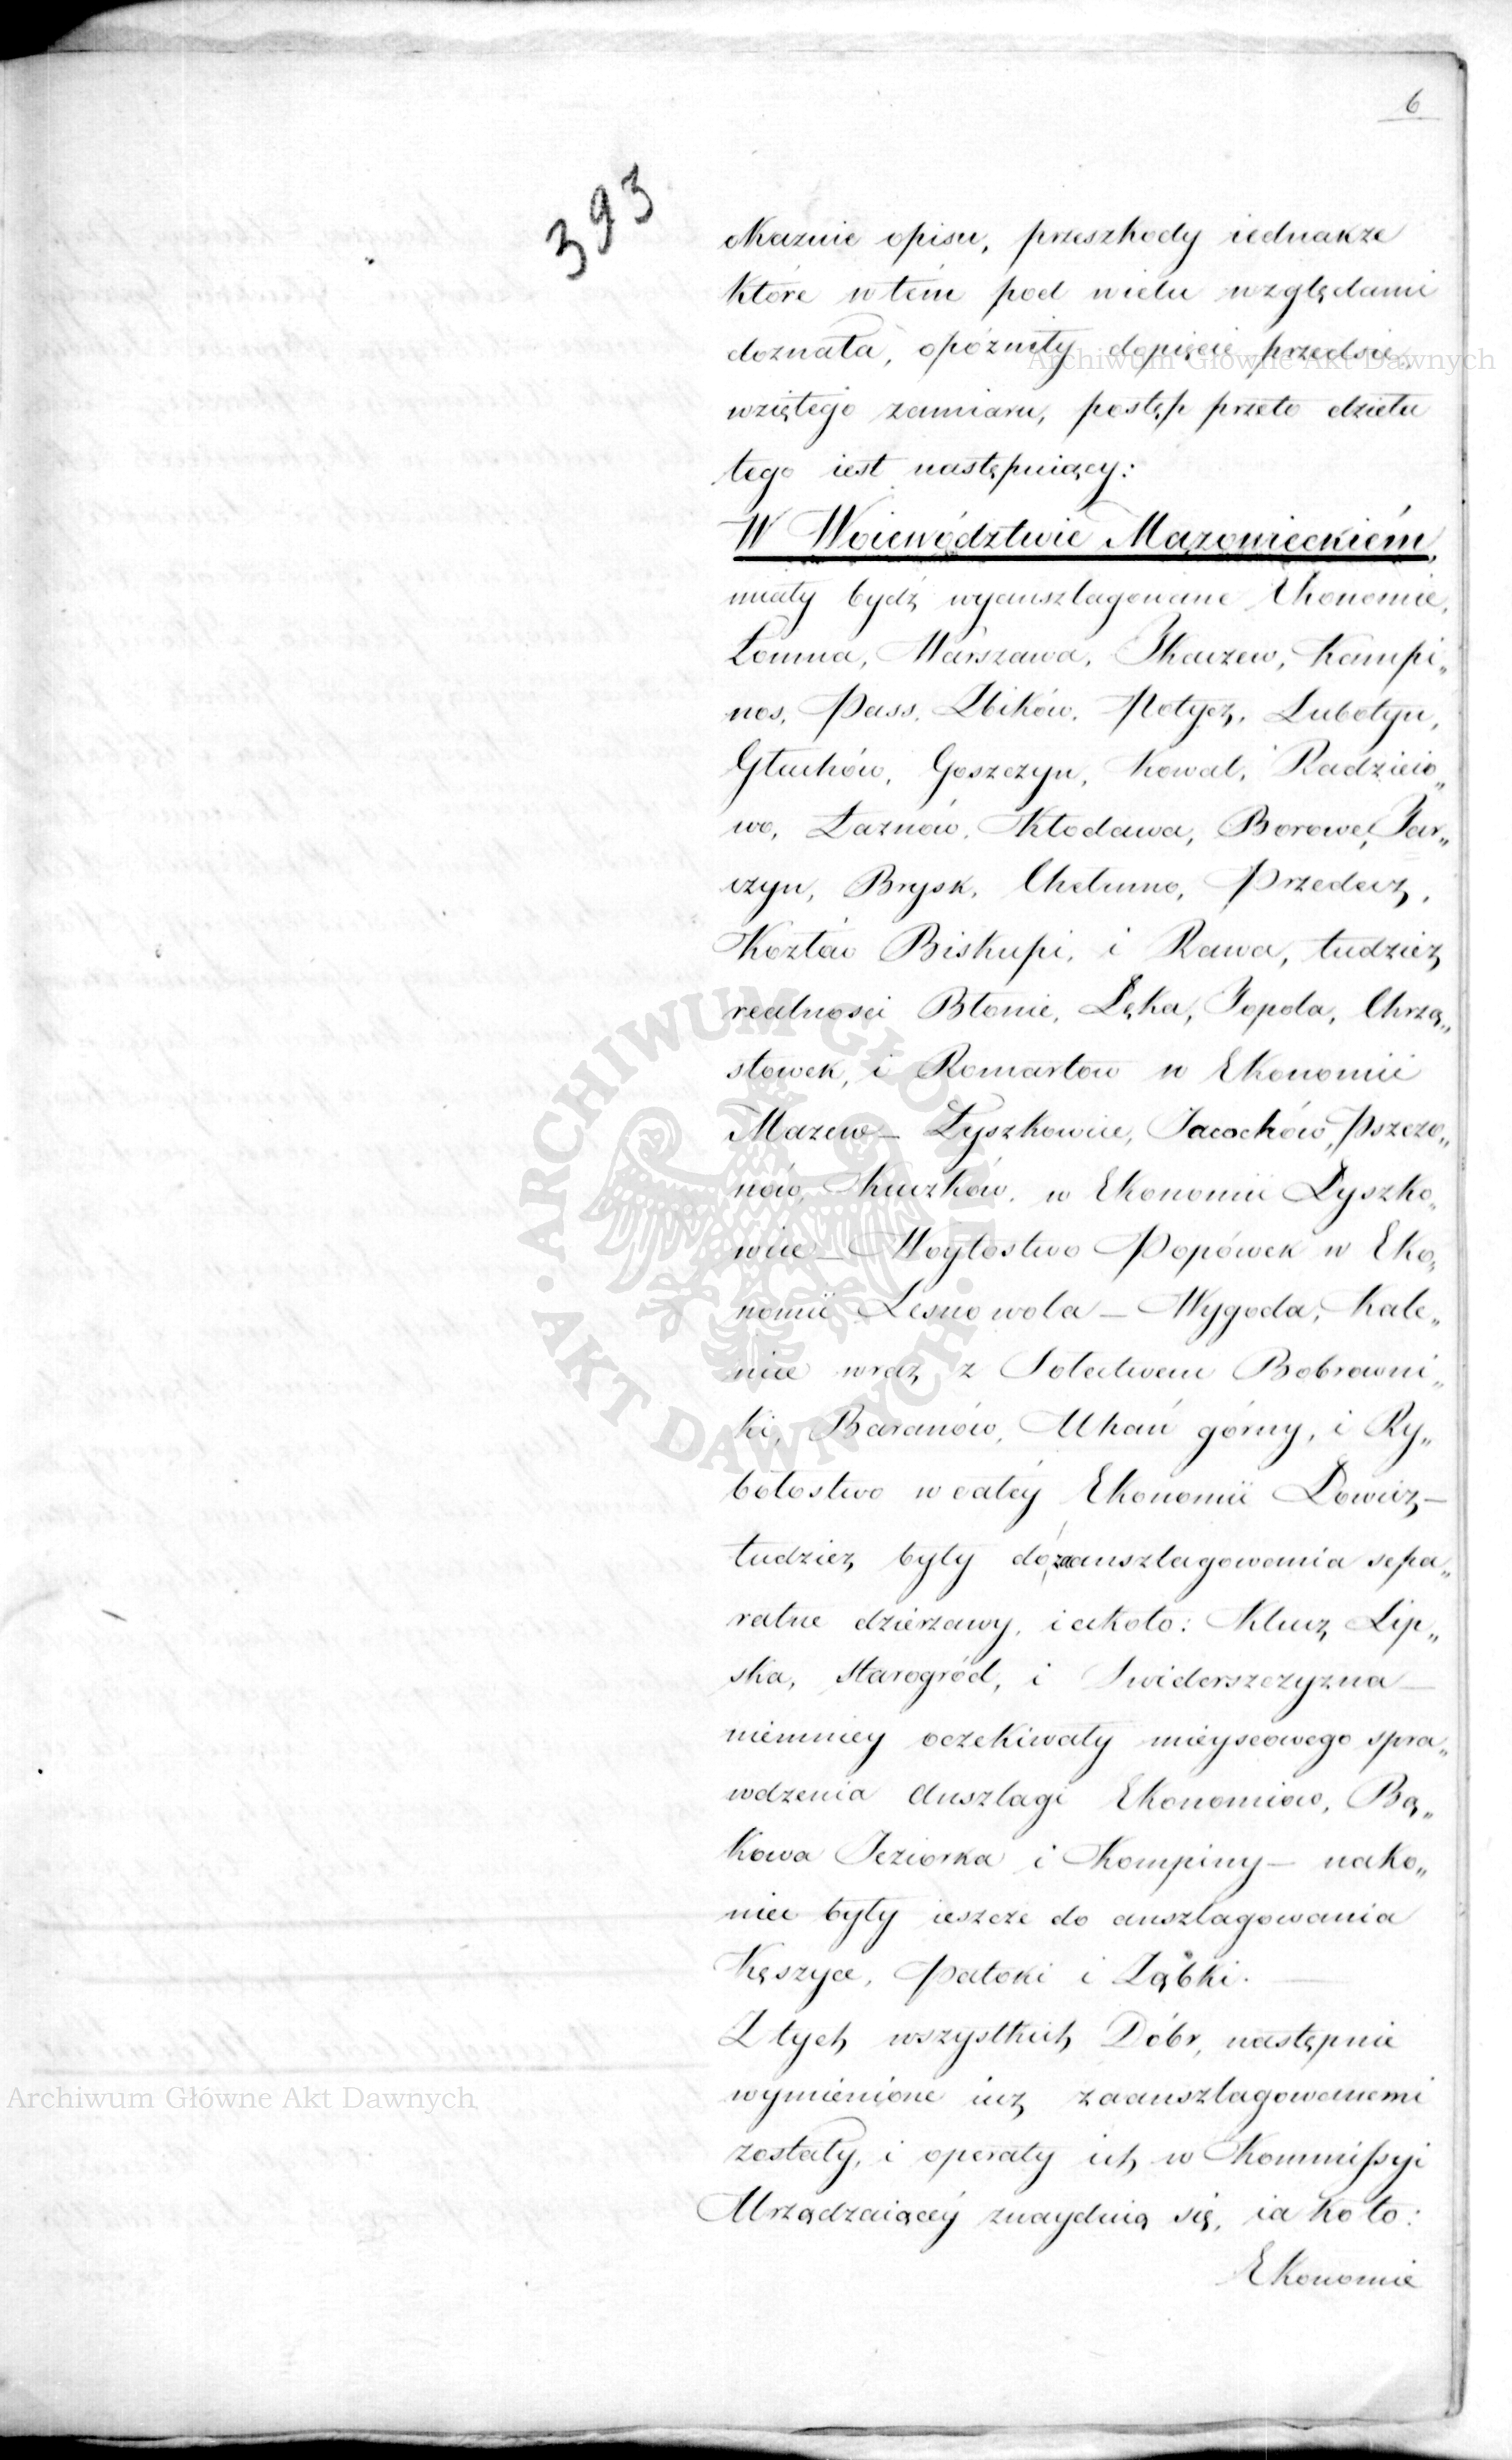 6
393
okaznie opisu, przeszkody iednakże
które w tém pod wielu względami
doznała, opóźniły dopięcie przedsię„
wziętego zamiaru, postęp przeto dzieła
tego iest następuiący:
W Woiewództwie Mazowieckiém,
miały bydź wyanszlagowane Ekonomie,
Łomna, Warszawa, Tkaczew, Kampi„
nos, Pass, Zbików, Potycz, Lubotyń,
Głuchów, Goszczyn, Kowal, Radzieio„
wo, Łaznów, Kłodawa, Borowe, Tar„
czyn, Brysk, Chełmno, Przedecz,
Kozłów Biskupi, i Rawa, tudzież
realnosci Błonie, Łęka, Topola, Chrzą„
stowek, i Romartów w Ekonomii
Mazew – Łyszkowice, Jacochów, Pszczo„
nów, Kuczków, w Ekonomii Łyszko„
wice – Woytostwo Popówek w Eko„
nomii Lesnowola – Wygoda, Kale„
nice wraz z Sołectwem Bobrowni„
ki, Baranów, Uchań górny, i Ry„
bołostwo w całéy Ekonomii Łowicz –
tudzież były do zaanszlagowania sepa„
ratne dzierżawy, iakoto: Klucz Lip„
ska, Starogród, i Swiderszczyzna –
niemniey oczekiwały mieyscowego spra„
wdzenia Anszlagi Ekonomiow, Bą„
kowa Jeziorka i Kompiny – nako„
niec były ieszcze do anszlagowania
Kęszyce, Patoki i Ząbki. –
Z tych wszystkich Dóbr, następnie
wymienione iuż zaanszlagowanemi
zostały, i operaty ich w Kommissyi
Urządzaiącéy znayduią się, iako to:
Ekonomie
Archiwum Główne Akt Dawnych
ARCHIWUM GŁÓWNE AKT DAWNYCH
Archiwum Główne Akt Dawnych